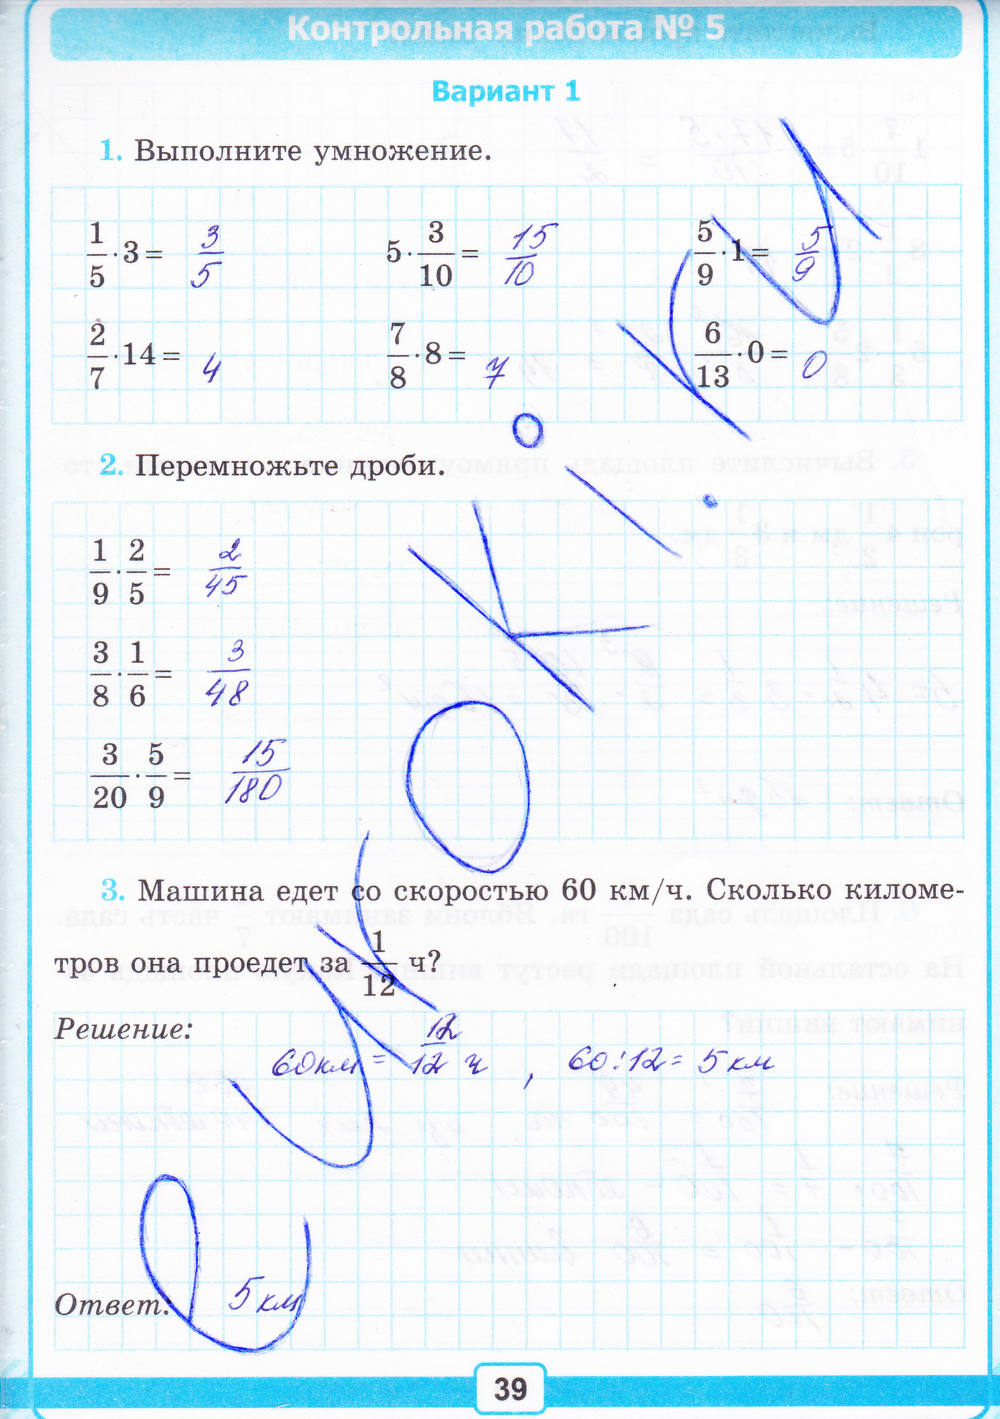 Контрольная работа № 5
Вариант 1
1. Выполните умножение.
1/5 · 3 = 3/5   5 · 3/10 = 15/10   5/9 · 1 = 5/9
2/7 · 14 = 4   7/8 · 8 = 7   6/13 · 0 = 0
2. Перемножьте дроби.
1/9 · 2/5 = 2/45
3/8 · 1/6 = 3/48
3/20 · 5/9 = 15/180
3. Машина едет со скоростью 60 км/ч. Сколько киломе-
тров она проедет за 1/12 ч?
Решение:
60км = 12/12 ч , 60:12= 5 км
Ответ: 5 км
39